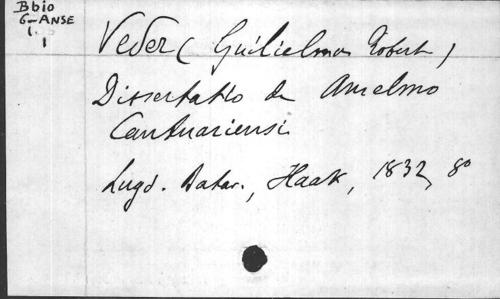 Bbio
G-ANSE
1
Veder (Guilielmus Robert)
Dissertatio de Anselmo
Cantuariensi
Lugd. Batav., Haak, 1832, 8º